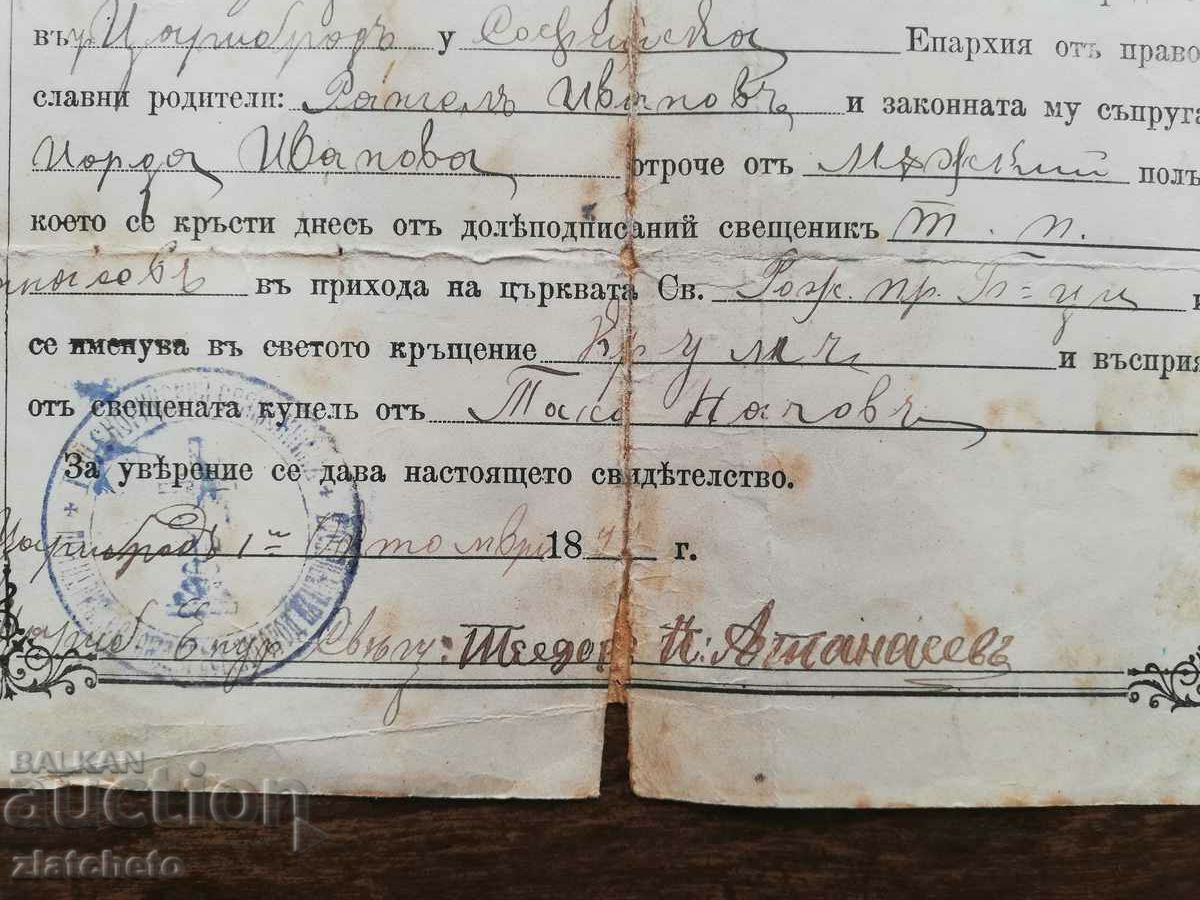 въ Царибродъ у Софийска Епархия отъ право
славни родители: Рангелъ Ивановъ и законната му съпруга
Иорда Иванова отроче отъ мѫжкий полъ
което се кръсти днесь отъ долѣподписаний свещеникъ Т. п.
въ прихода на църквата Св. Рож. пр. Б-ци и
се именува въ светото кръщение Крумъ и въсприя
отъ свещената купель отъ Тако Начовъ
За увѣрение се дава настоящето свидѣтелство.
Царибродъ 1й Октомври 18 г.
Свящ: Теодоръ п: Атанасовъ
BALKAN
auction
zlatcheto